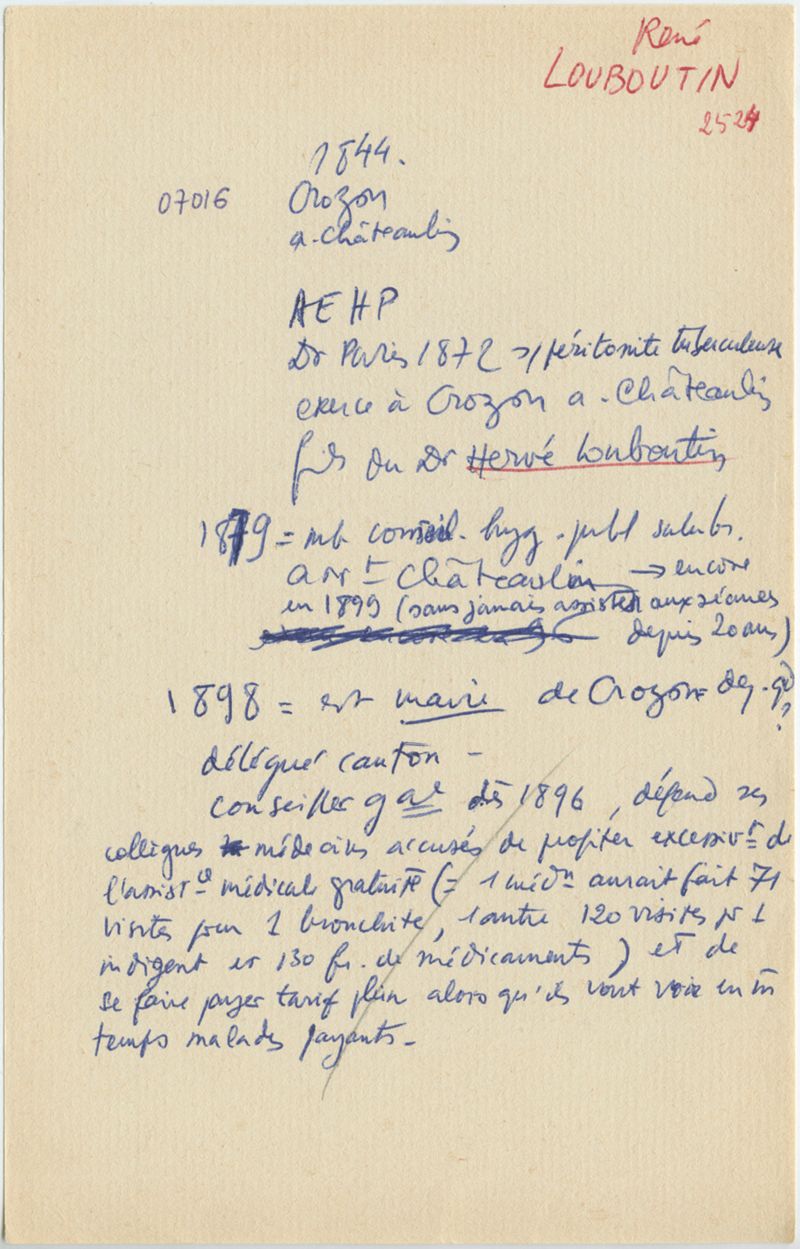 René
LOUBOUTIN
2524
1844.
07016 Crozon
a. Châteaulin
AEHP
Dr Paris 1872 → péritonite tuberculeuse
exerce à Crozon a. Châteaulin
fils du Dr Hervé Louboutin
1879 = mb conseil. hyg. publ salub.
arrt Châteaulin → encore
en 1899 (sans jamais assister aux séances
depuis 20 ans)
1898 = est maire de Crozon= dep. qd
?
délégué canton -
conseiller gal dès 1896, défend ses
collègues médecins accusés de profiter excessivt de
l'assistce médicale gratuite (= 1 médn aurait fait 71
visites pour 1 bronchite, 1 autre 120 visites pr 1
indigent et 130 fr. de médicaments) et de
se faire payer tarif plein alors qu'ils vont voir en m̄
temps malades payants-